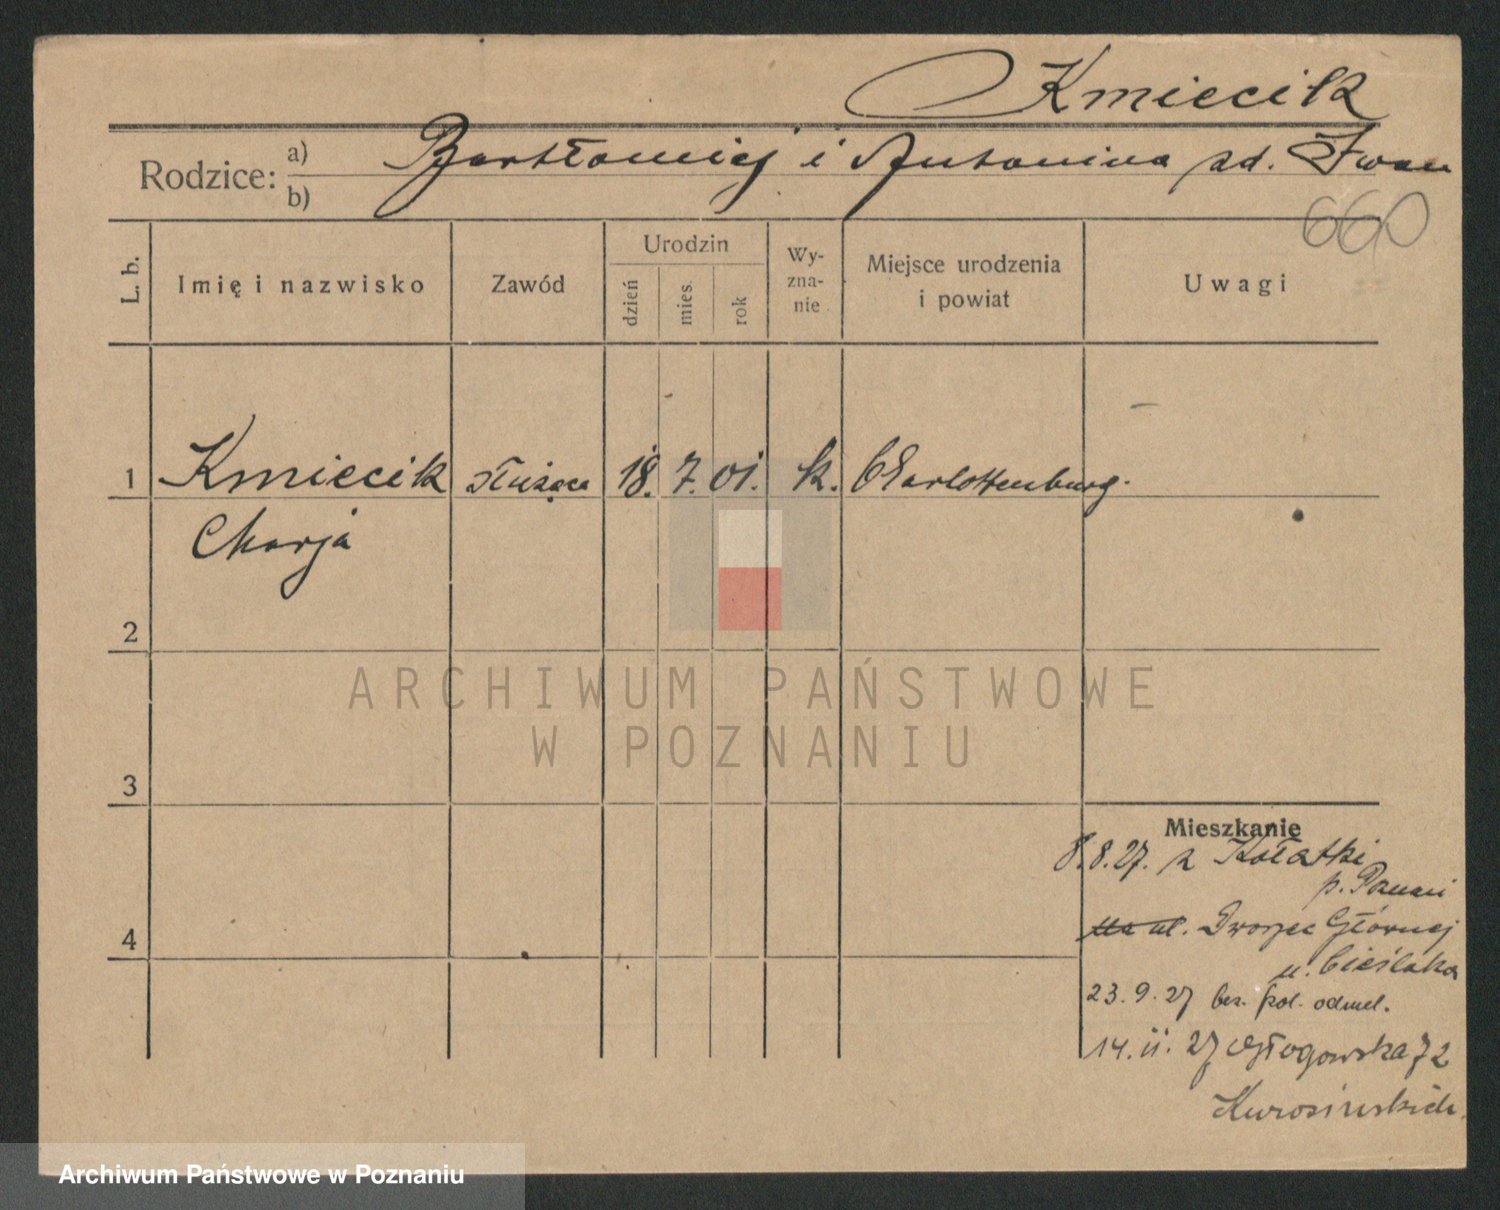 Kmiecik
Rodzice: a) Bartłomiej i Antonina zd. Iwan
b)
660
L. b. Imię i nazwisko Zawód Urodzin dzień mies. rok Wyznanie Miejsce urodzenia i powiat Uwagi
1 Kmiecik służąca 18. 7. 01. k. Charlottenburg.
Marja
2
ARCHIWUM PAŃSTWOWE
W POZNANIU
3
Mieszkanie
8.8.27. z Kołatki
p.
ul. Dworzec Głównej
u. Cieślaka
23.9.27 bez. pol. odmel.
14.11.27 Głogowska 72
4
Archiwum Państwowe w Poznaniu